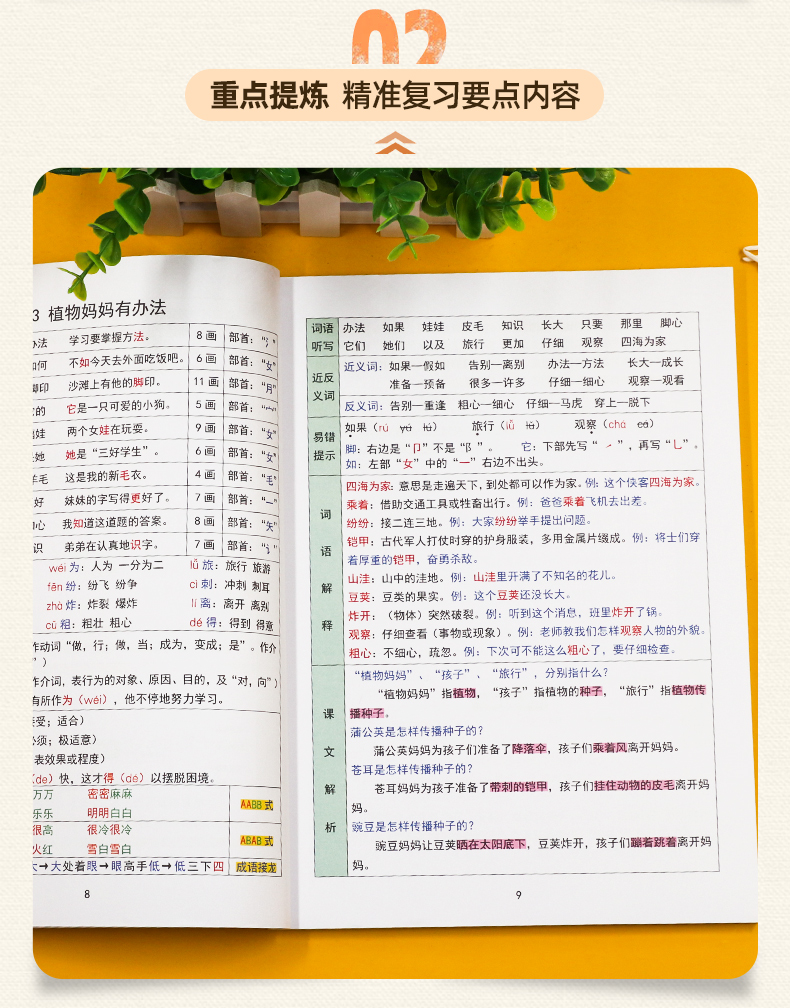 02
重点提炼 精准复习要点内容
3 植物妈妈有办法
办法 学习要掌握方法。 8画 部首：“氵”
如何 不如今天去外面吃饭吧。 6画 部首：“女”
脚印 沙滩上有他的脚印。 11画 部首：“月”
它是一只可爱的小狗。 5画 部首：“宀”
娃娃 两个女娃在玩耍。 9画 部首：“女”
她是“三好学生”。 6画 部首：“女”
羊毛 这是我的新毛衣。 4画 部首：“毛”
好 妹妹的字写得更好了。 7画 部首：“一”
心 我知道这道题的答案。 8画 部首：“矢”
识 弟弟在认真地识字。 7画 部首：“讠”
wéi 为：人为 一分为二 lǚ 旅：旅行 旅游
fēn 纷：纷飞 纷争 cì 刺：冲刺 刺耳
zhà 炸：炸裂 爆炸 lí 离：离开 离别
cū 粗：粗壮 粗心 dé 得：得到 得意
作动词“做，行；做，当；成为，变成；是”。作介
”）
作介词，表行为的对象、原因、目的，及“对，向”）
有所作为（wéi），他不停地努力学习。
接受；适合）
必须；极适意）
表效果或程度）
（de）快，这才得（dé）以摆脱困境。
万万 密密麻麻 AABB 式
乐乐 明明白白
很高 很冷很冷 ABAB 式
火红 雪白雪白
大→大处着眼→眼高手低→低三下四 成语接龙
8
词语听写
办法 如果 娃娃 皮毛 知识 长大 只要 那里 脚心
它们 她们 以及 旅行 更加 仔细 观察 四海为家
近反义词
近义词：如果—假如 告别—离别 办法—方法 长大—成长
准备—预备 很多—许多 仔细—细心 观察—观看
反义词：告别—重逢 粗心—细心 仔细—马虎 穿上—脱下
易错提示
如果（rú yú lú） 旅行（lǚ lú） 观察（chá cá）
脚：右边是“卩”不是“阝”。 它：下部先写“㇒”，再写“乚”。
如：左部“女”中的“一”右边不出头。
词语解释
四海为家：意思是走遍天下，到处都可以作为家。例：这个侠客四海为家。
乘着：借助交通工具或牲畜出行。例：爸爸乘着飞机去出差。
纷纷：接二连三地。例：大家纷纷举手提出问题。
铠甲：古代军人打仗时穿的护身服装，多用金属片缀成。例：将士们穿
着厚重的铠甲，奋勇杀敌。
山洼：山中的洼地。例：山洼里开满了不知名的花儿。
豆荚：豆类的果实。例：这个豆荚还没长大。
炸开：（物体）突然破裂。例：听到这个消息，班里炸开了锅。
观察：仔细查看（事物或现象）。例：老师教我们怎样观察人物的外貌。
粗心：不细心，疏忽。例：下次可不能这么粗心了，要仔细检查。
课文解析
“植物妈妈”、“孩子”、“旅行”，分别指什么？
“植物妈妈”指植物，“孩子”指植物的种子，“旅行”指植物传
播种子。
蒲公英是怎样传播种子的？
蒲公英妈妈为孩子们准备了降落伞，孩子们乘着风离开妈妈。
苍耳是怎样传播种子的？
苍耳妈妈为孩子准备了带刺的铠甲，孩子们挂住动物的皮毛离开妈
妈。
豌豆是怎样传播种子的？
豌豆妈妈让豆荚晒在太阳底下，豆荚炸开，孩子们蹦着跳着离开妈
妈。
9